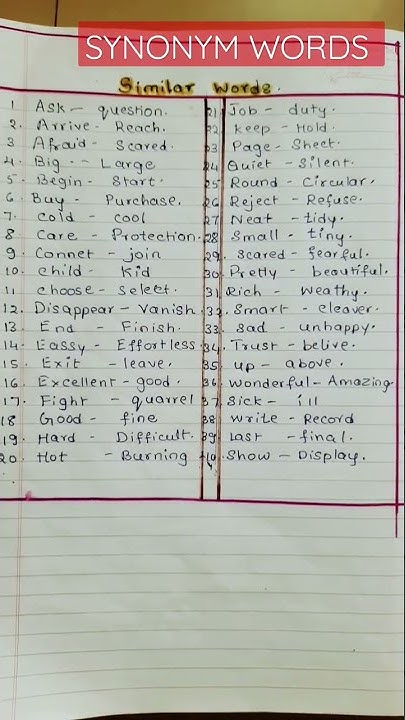 SYNONYM WORDS
Similar Words.
1. Ask - question.
2. Arrive - Reach.
3 Afraid - Scared.
4. Big - Large
5. Begin - Start.
6 Buy - Purchase.
7. Cold - cool
8 Care - Protection.
9. Connet - join
10. Child - Kid
11. choose - select.
12. Disappear - Vanish.
13. End - Finish.
14. Eassy - Effortless
15. Exit - leave.
16. Excellent - good.
17. Fight - quarrel
18 Good - fine
19. Hard - Difficult.
20. Hot - Burning
21. Job - duty.
22. keep - Hold.
23. Page - Sheet.
24. Quiet - Silent.
25. Round - Circular.
26. Reject - Refuse.
27. Neat - tidy.
28. Small - tiny.
29. scared - fearful.
30. Pretty - beautiful.
31. Rich - Weathy.
32. Smart - cleaver.
33. sad - unhappy.
34. Trust - belive.
35. up - above.
36. Wonderful - Amazing
37. Sick - ill
38. Write - Record
39. Last - final.
40. Show - Display.